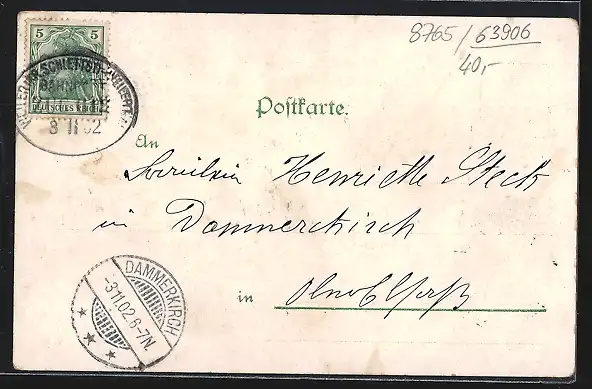 8765/63906
40,-
5 5
DEUTSCHES REICH
BAHN
3 11 02
Postkarte.
An
Fräulein Henriette Steck
in Dammerkirch
in Ober Elsaß
DAMMERKIRCH
-3.11.02.6-7N.